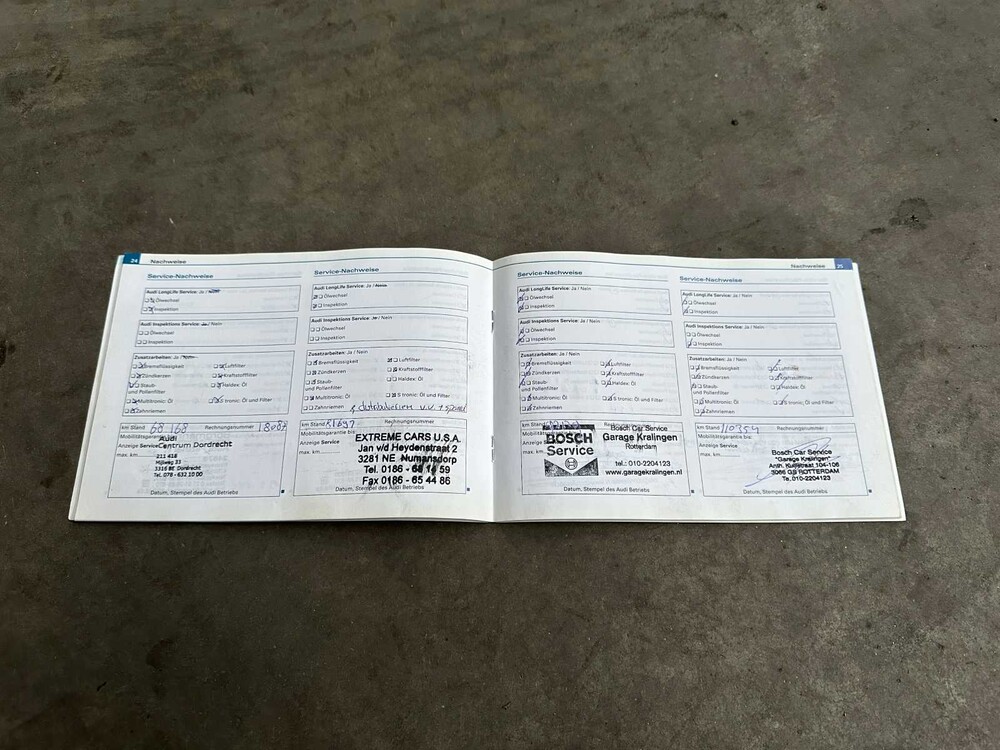 24 Nachweise
Service-Nachweise
Audi LongLife Service: Ja /
Ölwechsel
Inspektion
Audi Inspektions Service: / Nein
Ölwechsel
Inspektion
Zusatzarbeiten: Ja /
Bremsflüssigkeit Luftfilter
Zündkerzen Kraftstofffilter
Staub- Haldex: Öl
und Pollenfilter
Multitronic: Öl S tronic: Öl und Filter
Zahnriemen
km Stand 68 168 Rechnungsnummer
Mobilitätsgarantie bis:
Anzeige Service
max. km
Audi
Centrum Dordrecht
211 418
Mijlweg 33
3316 BE Dordrecht
Tel. 078 - 632 10 00
Datum, Stempel des Audi Betriebs
Service-Nachweise
Audi LongLife Service: Ja /
Ölwechsel
Inspektion
Audi Inspektions Service: / Nein
Ölwechsel
Inspektion
Zusatzarbeiten: Ja / Nein
Bremsflüssigkeit Luftfilter
Zündkerzen Kraftstofffilter
Staub- Haldex: Öl
und Pollenfilter
Multitronic: Öl S tronic: Öl und Filter
Zahnriemen
km Stand Rechnungsnummer
Mobilitätsgarantie bis:
Anzeige Service
max. km
EXTREME CARS U.S.A.
Jan v/d Heydenstraat 2
3281 NE Numansdorp
Tel. 0186 - 68 14 59
Fax 0186 - 65 44 86
Datum, Stempel des Audi Betriebs
Nachweise 25
Service-Nachweise
Audi LongLife Service: Ja / Nein
Ölwechsel
Inspektion
Audi Inspektions Service: Ja / Nein
Ölwechsel
Inspektion
Zusatzarbeiten: Ja / Nein
Bremsflüssigkeit Luftfilter
Zündkerzen Kraftstofffilter
Staub- Haldex: Öl
und Pollenfilter
Multitronic: Öl S tronic: Öl und Filter
Zahnriemen
km Stand Rechnungsnummer
BOSCH
Service
Bosch Car Service
Garage Kralingen
Rotterdam
tel.: 010-2204123
www.garagekralingen.nl
Datum, Stempel des Audi Betriebs
Service-Nachweise
Audi LongLife Service: Ja / Nein
Ölwechsel
Inspektion
Audi Inspektions Service: Ja / Nein
Ölwechsel
Inspektion
Zusatzarbeiten: Ja / Nein
Bremsflüssigkeit Luftfilter
Zündkerzen Kraftstofffilter
Staub- Haldex: Öl
und Pollenfilter
Multitronic: Öl S tronic: Öl und Filter
Zahnriemen
km Stand 110354 Rechnungsnummer
Mobilitätsgarantie bis:
Anzeige Service
max. km
Bosch Car Service
"Garage Kralingen"
104-106
3066 GS ROTTERDAM
Te. 010-2204123
Datum, Stempel des Audi Betriebs